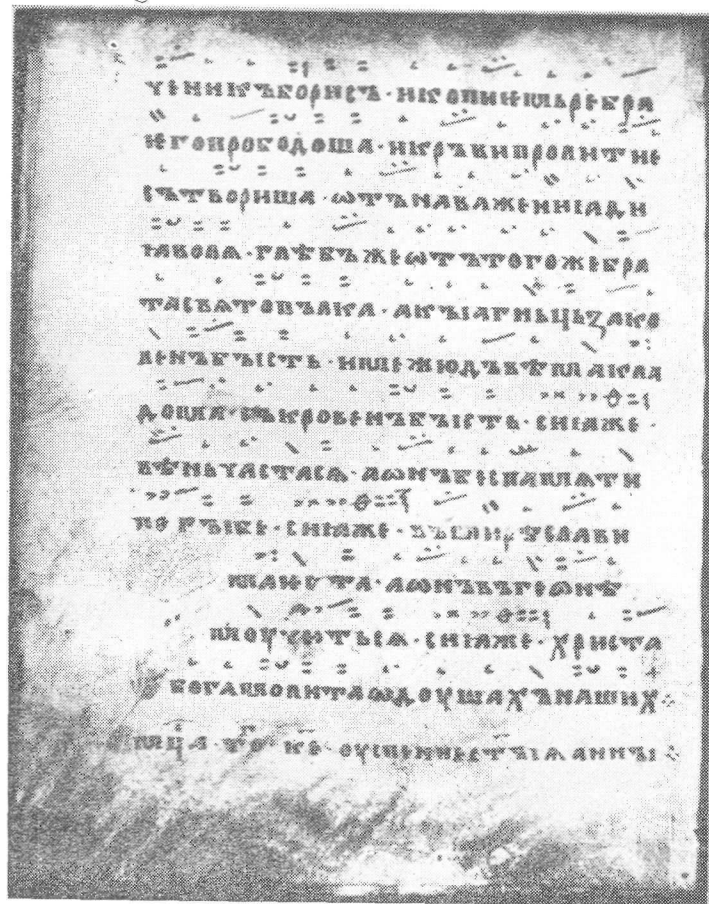 ченикъборисъ · икопиѥмьребра
ѥгопрободоша · икръвипролитиѥ
сътвориша · ѡтънаважениıади
ꙗвола · глѣбъжеѡтътогожебра
тасвѧтопълка · акꙑагньцьзако
ленъбꙑсть · имежюдъвѣмакла
дома · съкровенъбꙑсть · сиıаже ·
вѣньчастасѧ · аѡнъбеспамѧти
погꙑбе · сиıаже · въсемирѣслави
маѥста · аѡнъвъгеѡнѣ
моучитьсѧ · сиıаже · христа
богамолитаѡдоушахънаших ⁘
мц҃а · то҃ · к҃е · оуспениест҃ꙑꙗаннꙑ ⁘